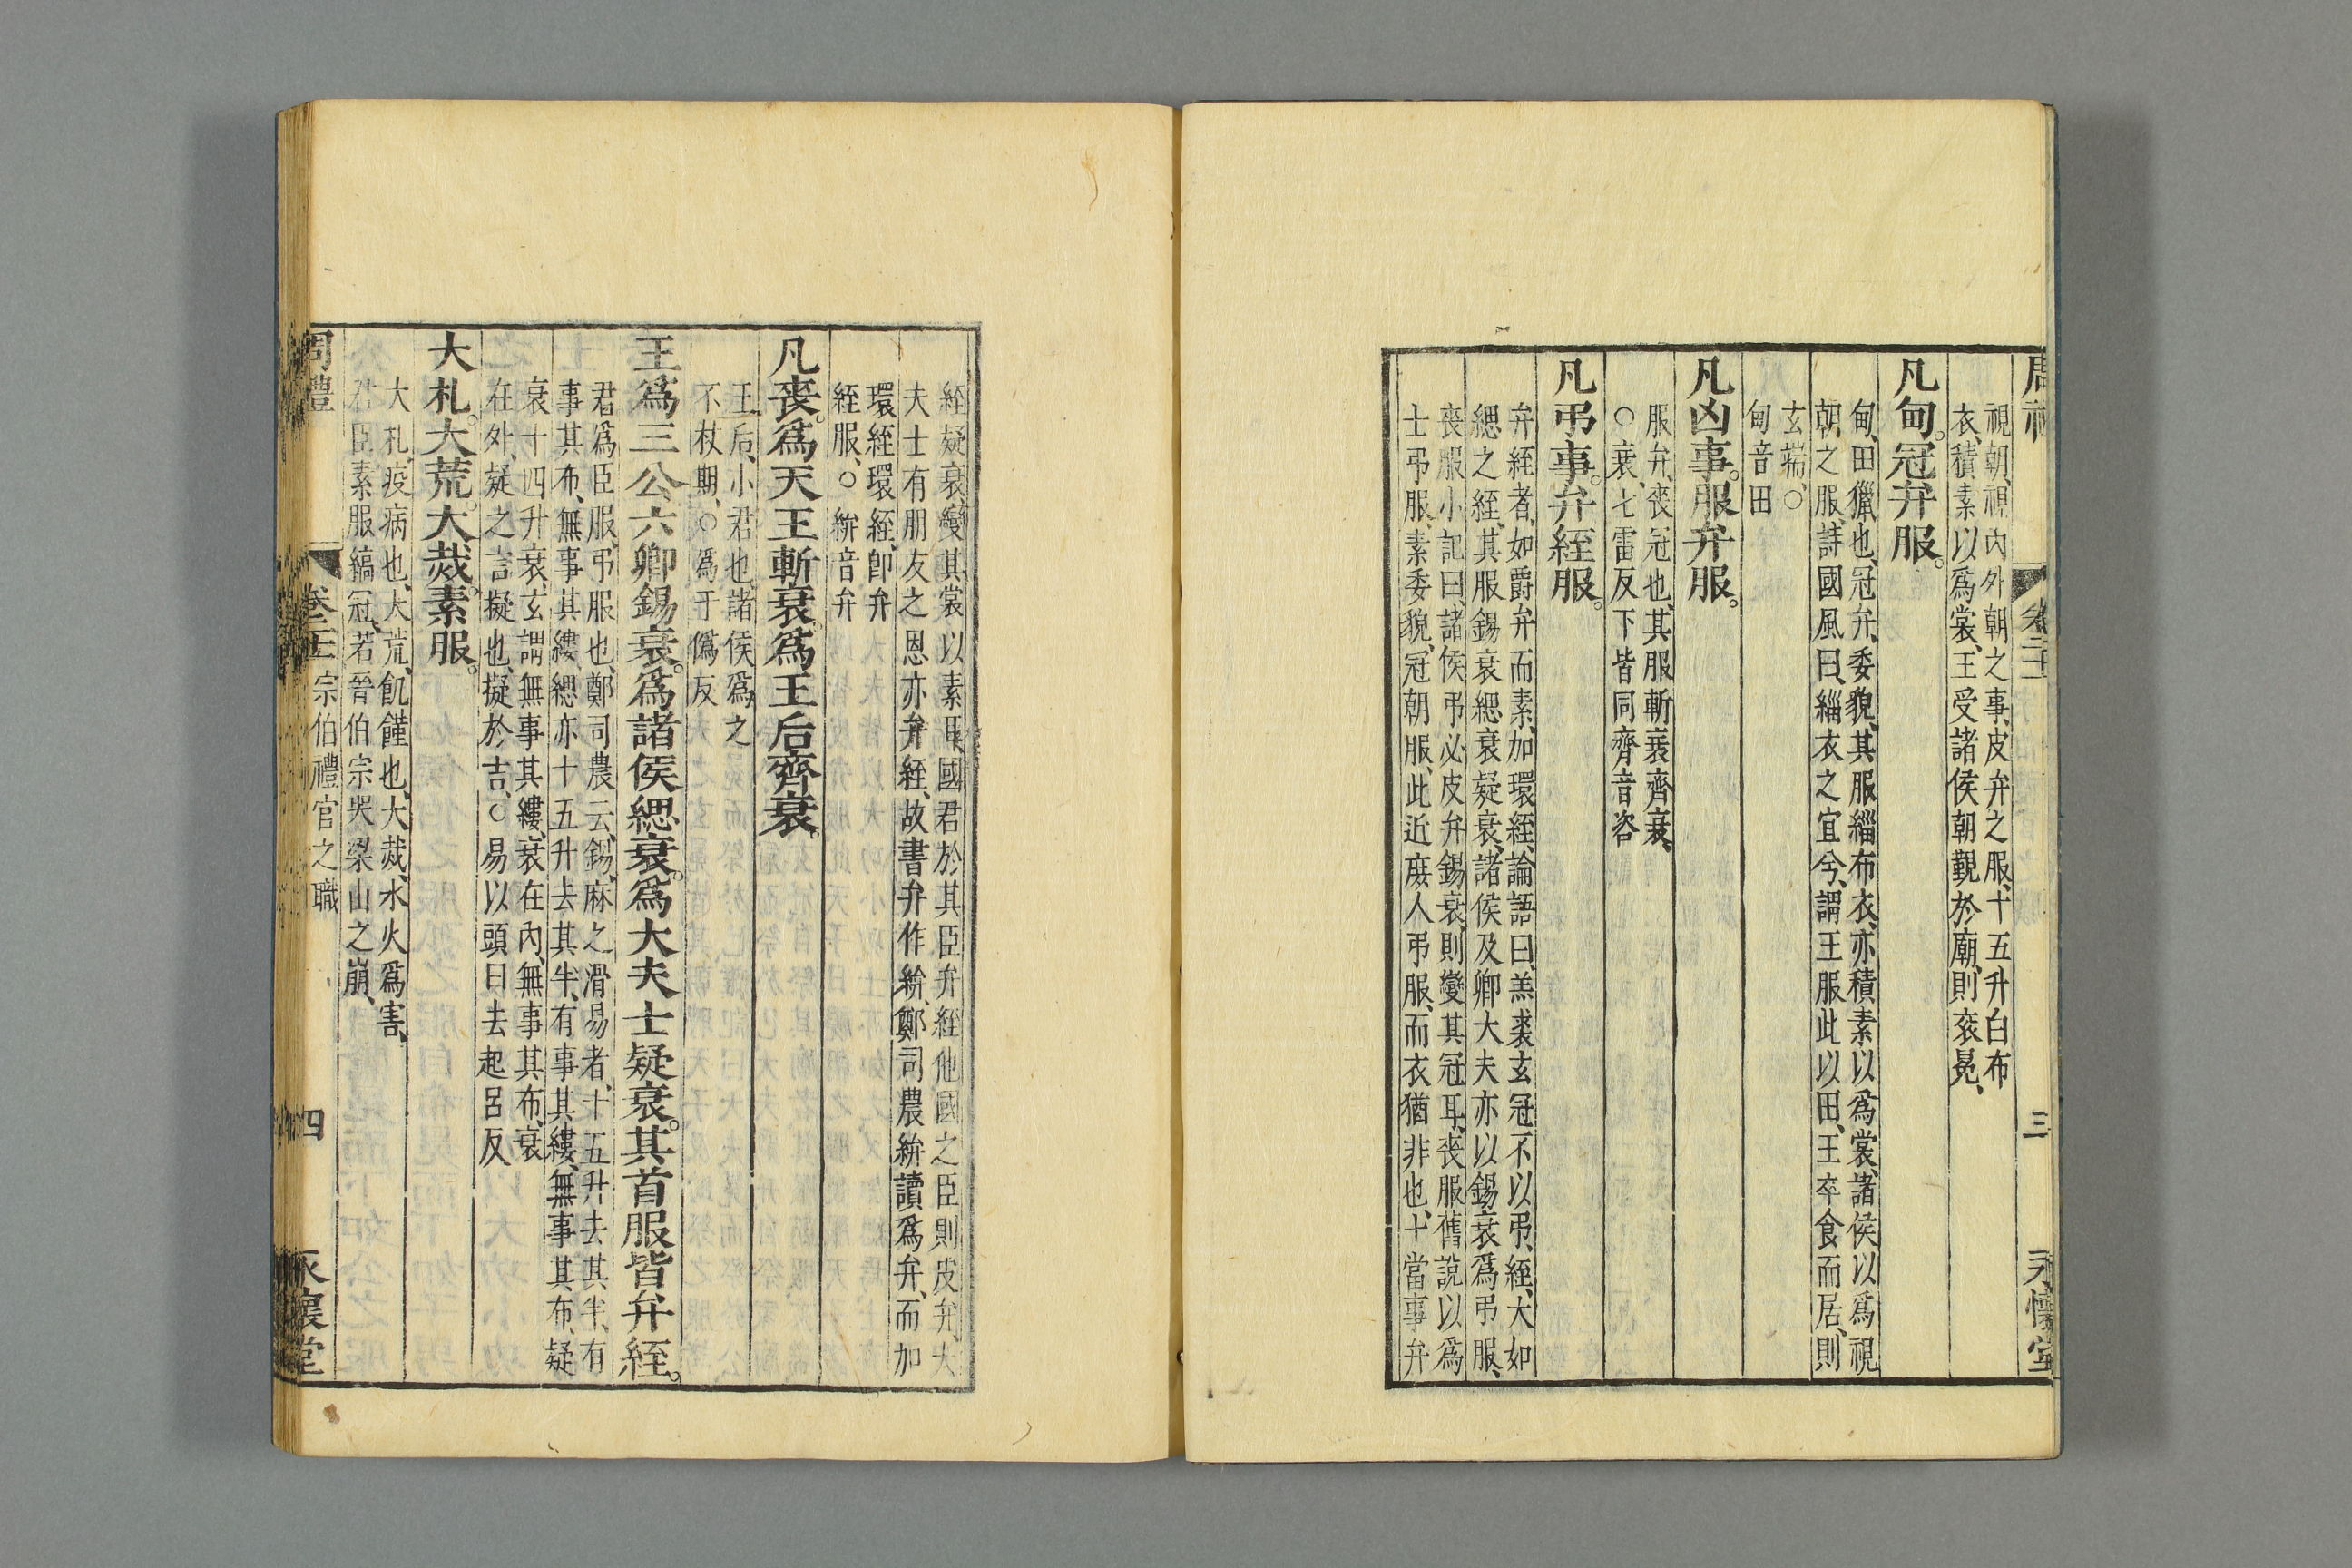 周禮
卷二十一
三
永懷堂
視朝、視內外朝之事、皮弁之服、十五升白布
衣、積素以爲裳、王受諸侯朝覲於廟、則衮冕、
凡甸。冠弁服。
甸、田獵也、冠弁、委貌、其服緇布衣、亦積素以爲裳、諸侯以爲視
朝之服、詩國風曰、緇衣之宜兮、謂王服此以田、王卒食而居、則
玄端、○
甸音田
凡凶事。服弁服。
服弁、喪冠也、其服斬衰齊衰、
○衰、七雷反下皆同齊音咨
凡弔事。弁絰服。
弁絰者、如爵弁而素、加環絰、論語曰、羔裘玄冠不以弔、絰、大如
緦之絰、其服錫衰緦衰疑衰、諸侯及卿大夫亦以錫衰爲弔服、
喪服小記曰、諸侯弔必皮弁錫衰、則變其冠耳、喪服舊說以爲
士弔服、素委貌、冠朝服、此近庶人弔服、而衣猶非也、士當事弁
絰疑衰、變其裳以素耳、國君於其臣弁絰他國之臣則皮弁、大
夫士有朋友之恩亦弁絰、故書弁作絣、鄭司農絣讀爲弁、而加
環絰環絰、卽弁
絰服、○絣音弁
凡喪。爲天王斬衰。爲王后齊衰。
王后、小君也、諸侯爲之
不杖期、○爲于僞反
王爲三公六卿錫衰。爲諸侯緦衰。爲大夫士疑衰。其首服皆弁絰。
君爲臣服、弔服也、鄭司農云、錫、麻之滑易者、十五升去其半、有
事其布、無事其縷、緦亦十五升去其半、有事其縷、無事其布、疑
衰十四升衰、玄謂無事其縷、衰在內、無事其布、衰
在外、疑之言擬也、擬於吉、○易以頭曰去起呂反
大札。大荒。大烖。素服。
大札、疫病也、大荒、飢饉也、大烖、水火爲害、
君臣素服縞冠、若晉伯宗哭梁山之崩、
周禮
宗伯禮官之職
四
永懷堂